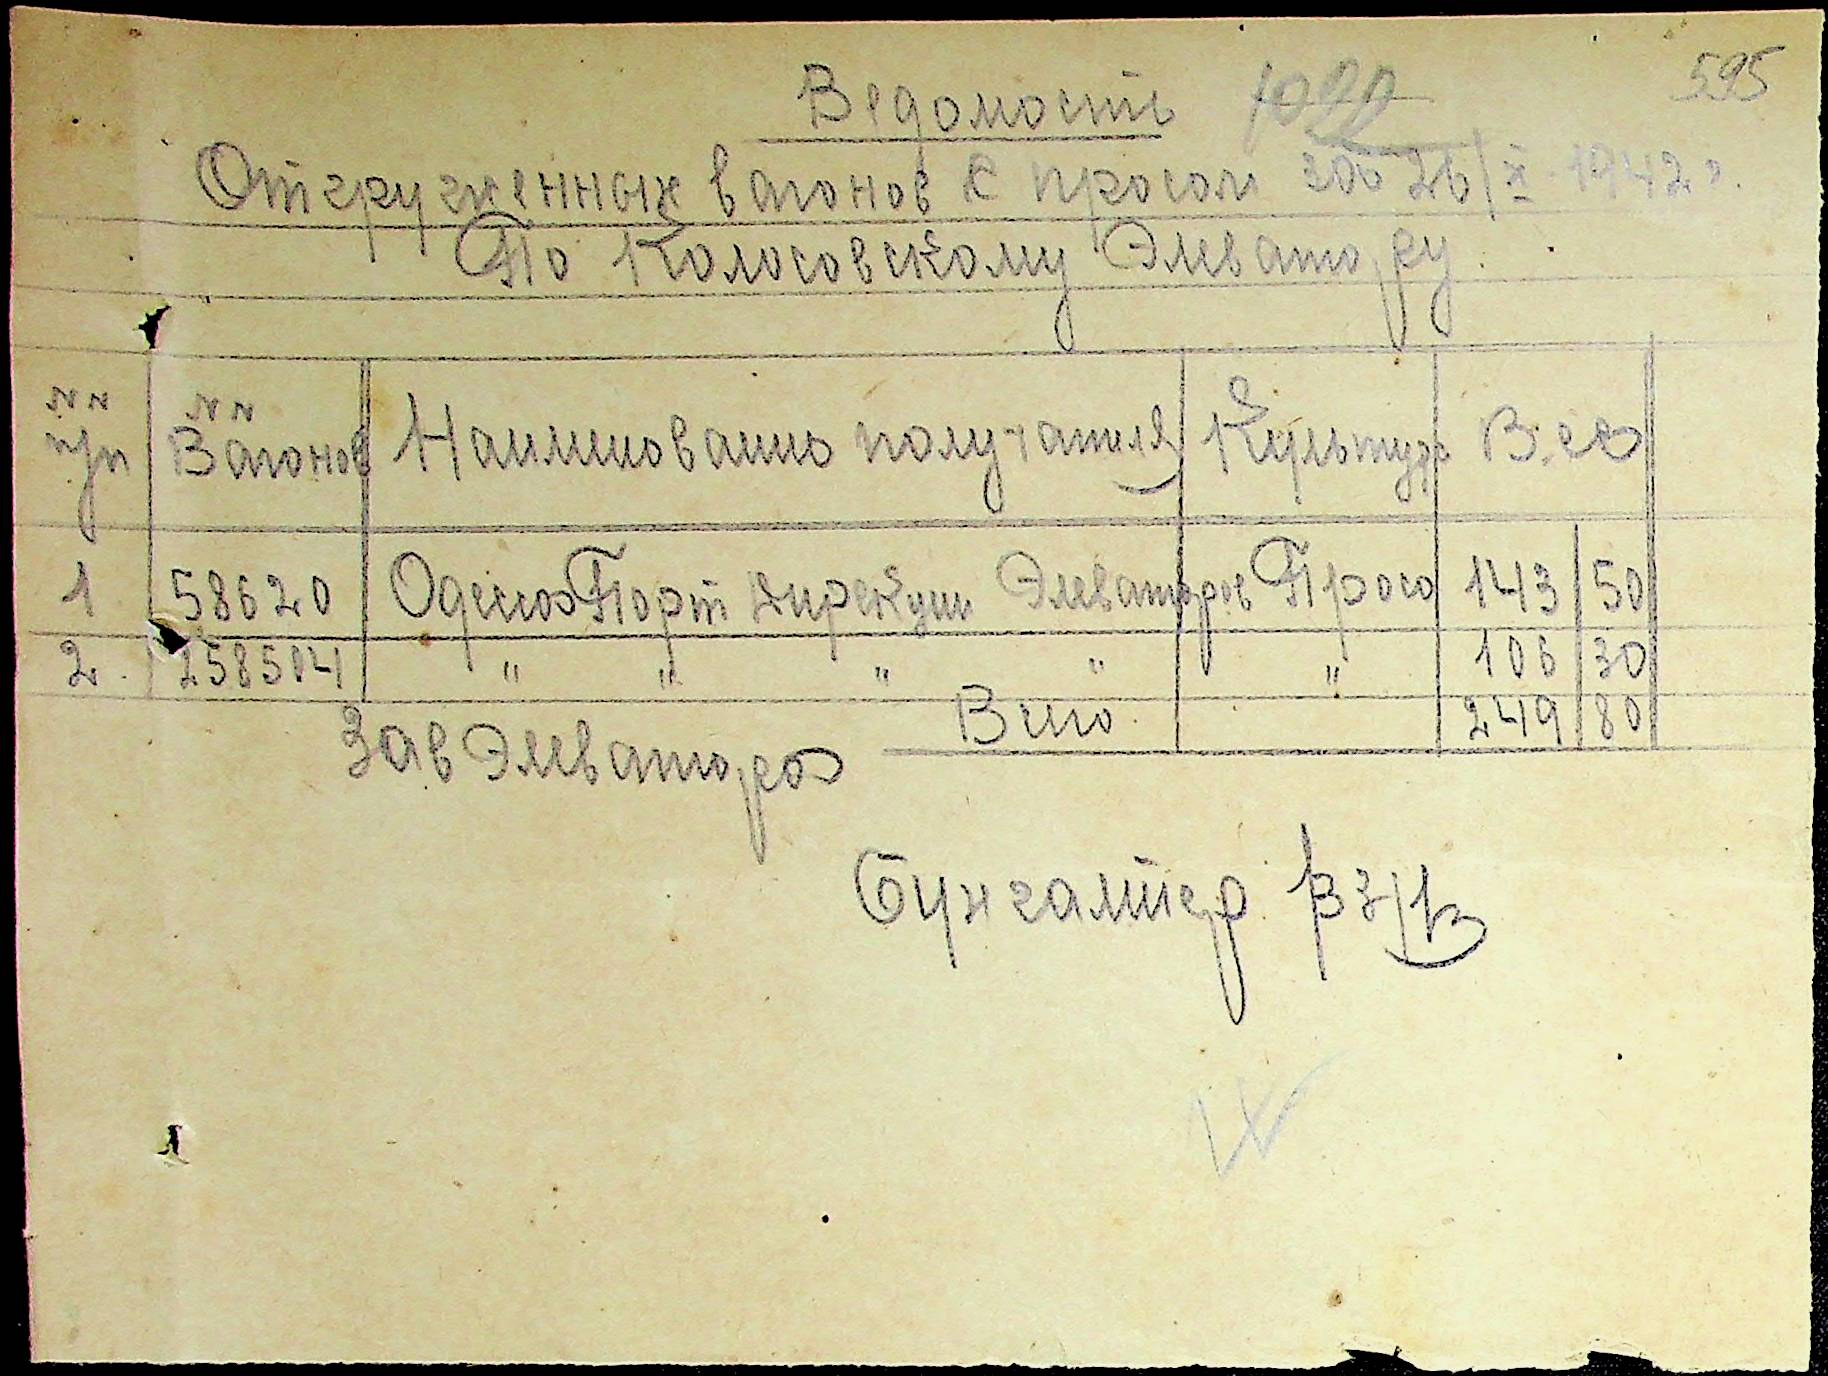 595
Ведомость
Отгруженных вагонов с просом за 26/X 1942г.
По Колосовскому Элеватору
№№ п/п №№ Вагонов Наименование получателя Культура Вес
1 58620 Одесса Порт Дирекции Элеваторов Просо 143 50
2 258504 " " " " " 106 30
Всего 249 80
Зав Элеватора
Бухгалтер